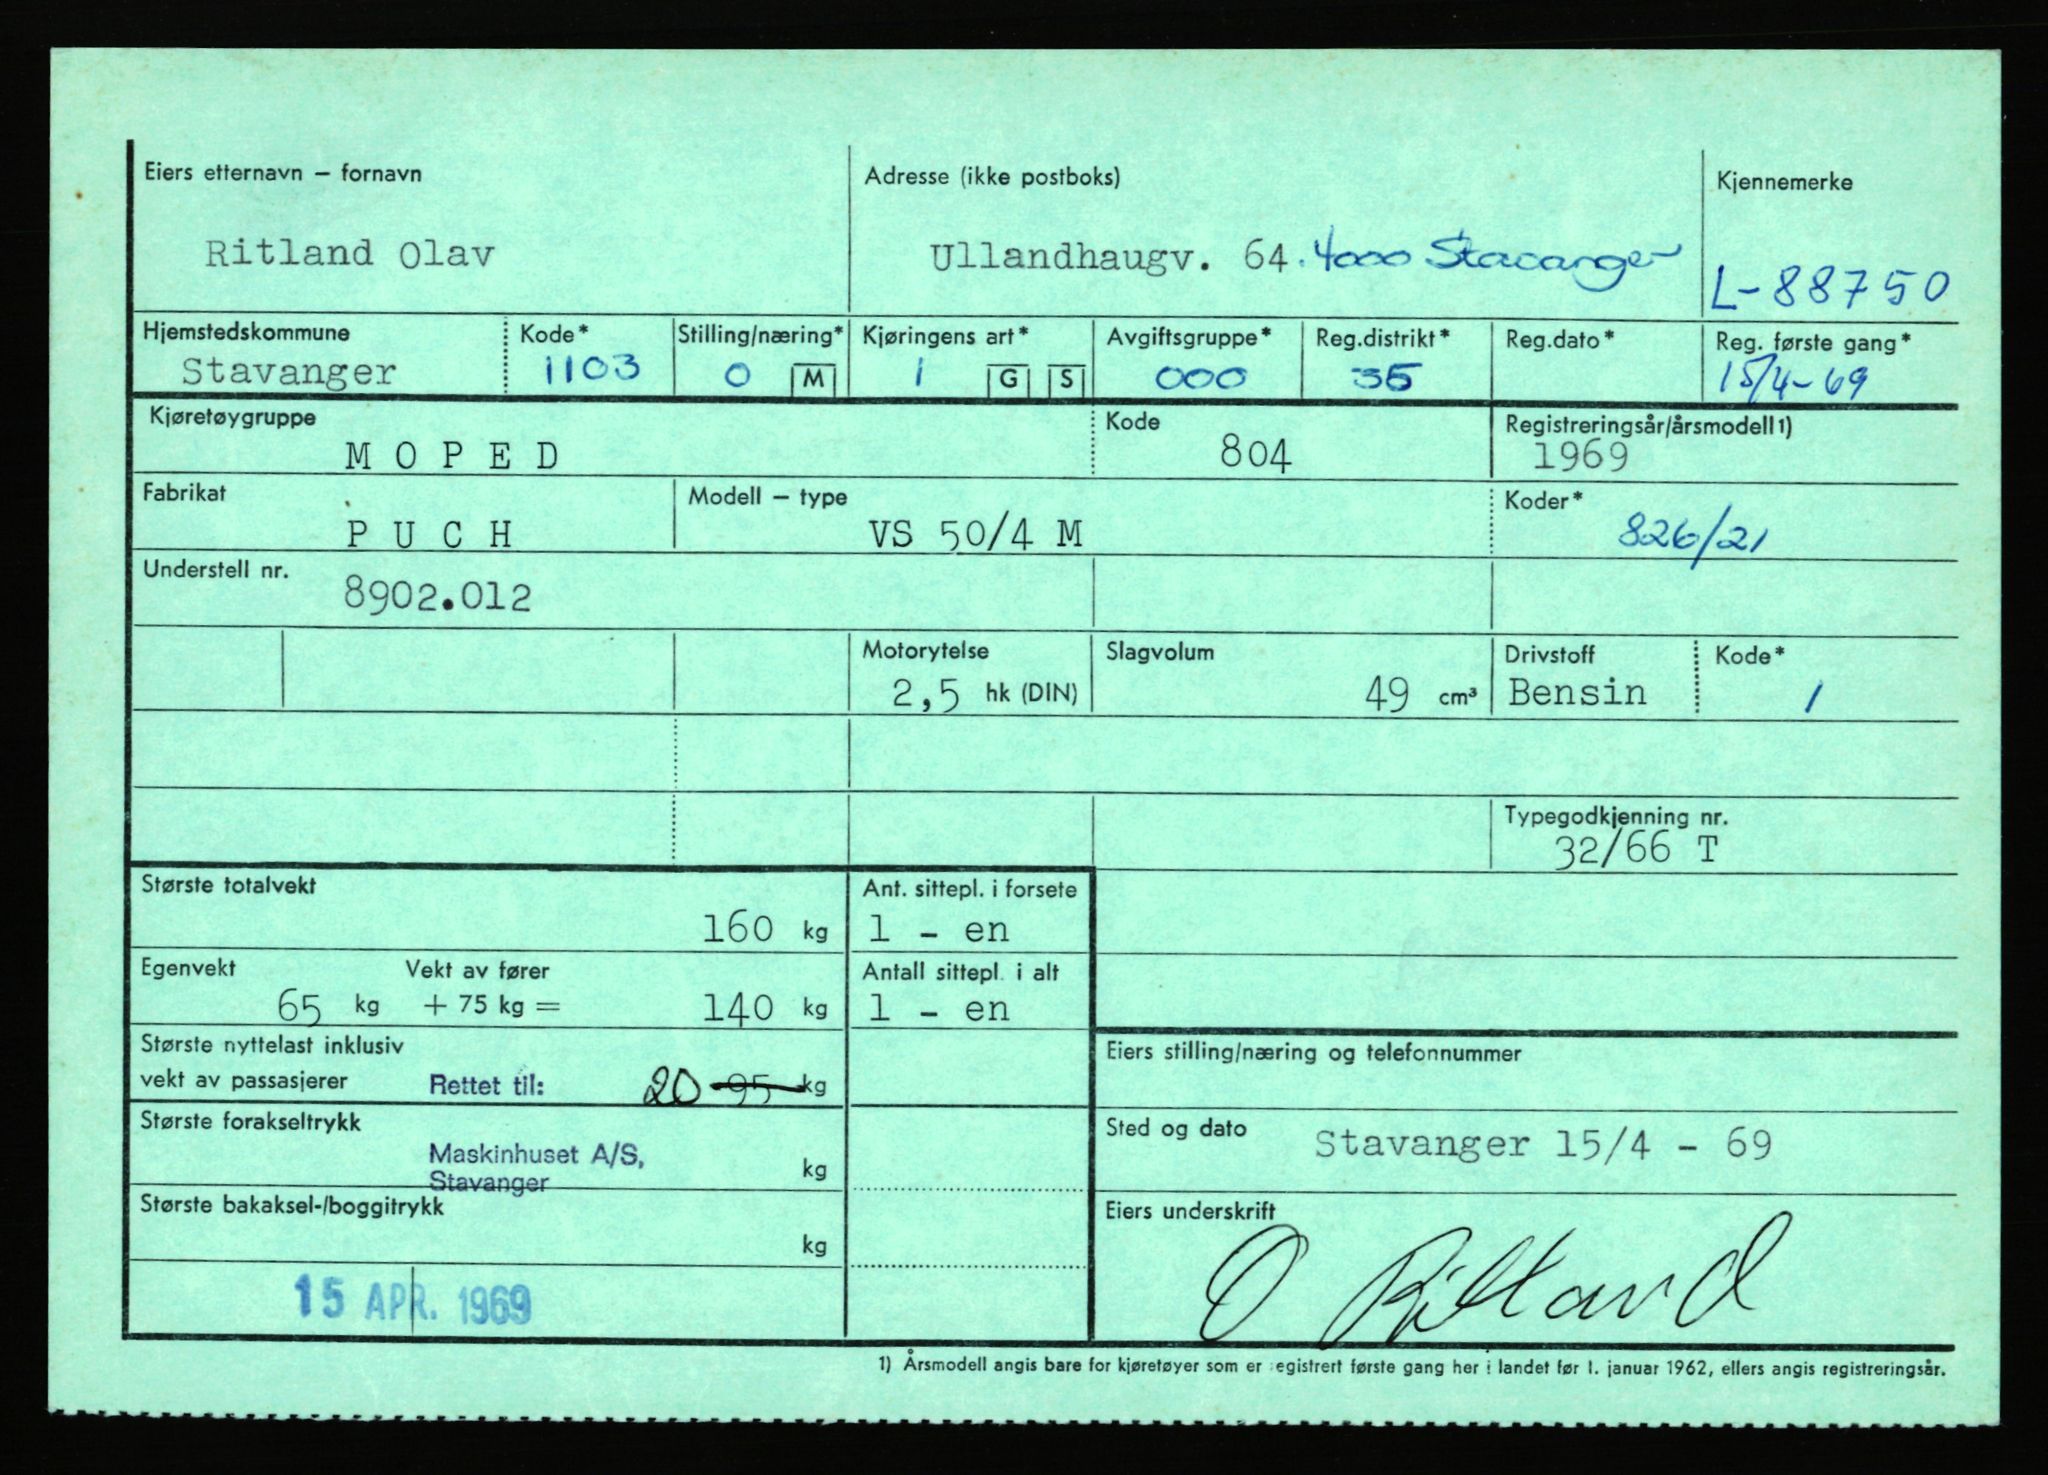 Eiers etternavn – fornavn
Adresse (ikke postboks)
Kjennemerke
Ritland Olav
Ullandhaugv. 64. 4000 Stavanger
L-88750
Hjemstedskommune Kode* Stilling/næring* Kjøringens art* Avgiftsgruppe* Reg.distrikt* Reg.dato* Reg. første gang*
Stavanger 1103 0 M 1 G S 000 35 15/4-69
Kjøretøygruppe Kode Registreringsår/årsmodell 1)
M O P E D 804 1969
Fabrikat Modell – type Koder*
P U C H VS 50/4 M 826/21
Understell nr.
8902.012
Motorytelse Slagvolum Drivstoff Kode*
2,5 hk (DIN) 49 cm³ Bensin 1
Typegodkjenning nr.
32/66 T
Største totalvekt Ant. sittepl. i forsete
160 kg 1 - en
Egenvekt Vekt av fører Antall sittepl. i alt
65 kg + 75 kg = 140 kg 1 - en
Største nyttelast inklusiv
vekt av passasjerer Rettet til: 20 95 kg
Eiers stilling/næring og telefonnummer
Største forakseltrykk
Maskinhuset A/S,
Stavanger
kg
Sted og dato Stavanger 15/4 - 69
Største bakaksel-/boggitrykk
kg
Eiers underskrift
O Ritland
15 APR. 1969
1) Årsmodell angis bare for kjøretøyer som er registrert første gang her i landet før 1. januar 1962, ellers angis registreringsår.